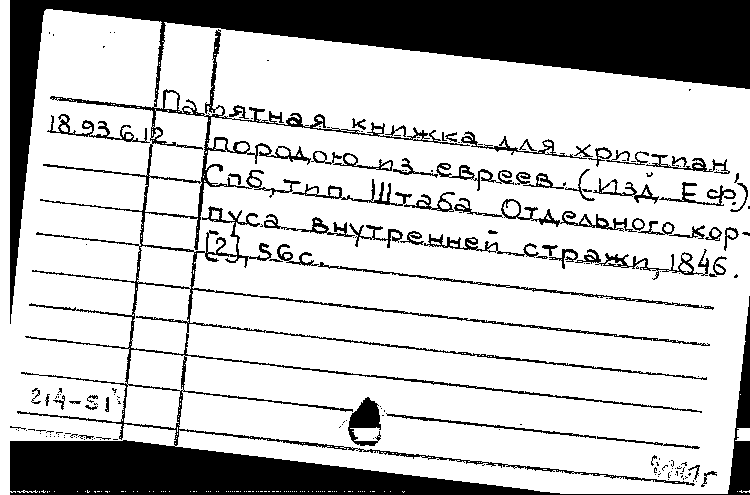 Памятная книжка для христиан,
18.93.6.12. породою из евреев. (Изд. Е Ф).
Спб, тип. Штаба Отдельного кор-
пуса внутренней стражи, 1846.
[2], 56 с.
214-51